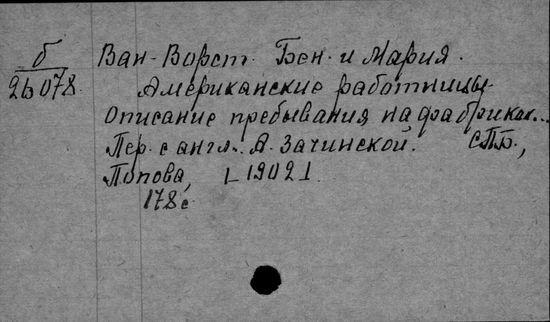 б Ван-Ворст. Бен. и Мария.
2Б 078. Американские работницы.
Описание пребывания на фабриках...
Пер. с англ. А. Зачинской. СПБ.,
Попова, [1902].
178 с